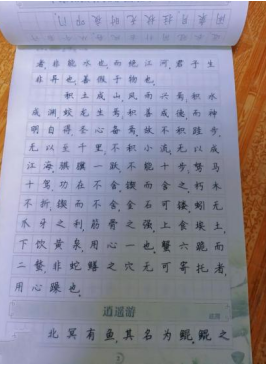 者，非能水也，而绝江河，君子生
非异也，善假于物也。
积土成山，风雨兴焉，积水
成渊，蛟龙生焉，积善成德，而神
明自得，圣心备焉，故不积跬步，
无以至千里，不积小流，无以成
江海，骐骥一跃，不能十步，驽马
十驾，功在不舍，锲而舍之，朽木
不折，锲而不舍，金石可镂，蚓无
爪牙之利，筋骨之强，上食埃土，
下饮黄泉，用心一也，蟹六跪而
二螯，非蛇鳝之穴无可寄托者，
用心躁也。
逍遥游
北冥有鱼，其名为鲲，鲲之